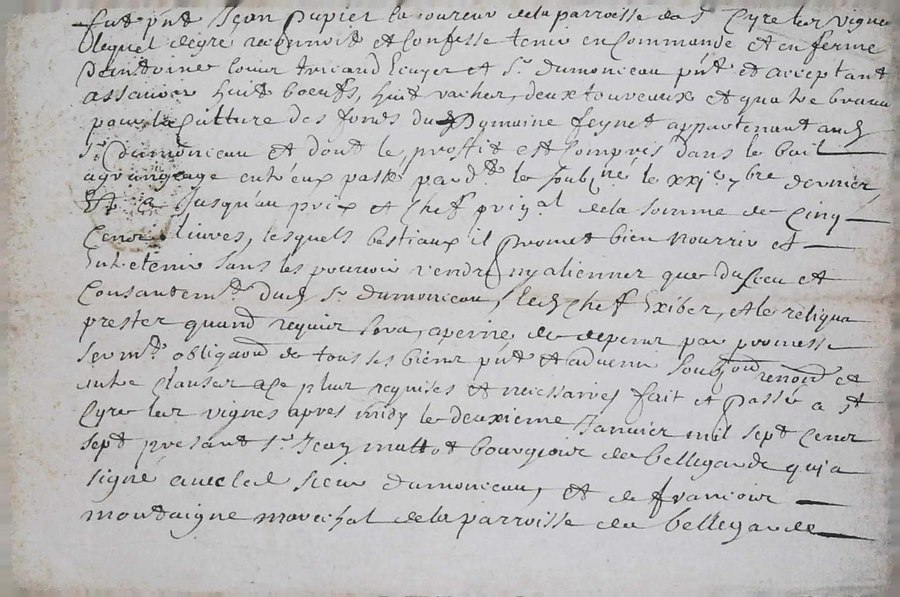 fut p'nt Jean papier laboureur de la parroisse de st Cyre les vignes
lequel de gre reconnoit et Confesse tenir en Commande et en ferme
D'antoine louis tricaud Ecuyer et sr dumonceau p'nt et acceptant
assauoir huit boeufs, huit vaches, deux touveaux et quatre
pour la Culture des fonds du Domaine feynet appartenant aud
sr dumonceau et dont le proffit est Compris dans le bail
agrangeage entr'eux passé pard.t le soub.né le xxj.e 7bre dernier
Jusqu'au prix et Chef prix.al de la somme de Cinq
Cens liures, lesquels bestiaux il promet bien nourrir et
Entretenir sans les pouvoir vendre ny alienner que du sceu et
Consantem.t dud sr dumonceau, led Chef Exiber, et le reliqua
prester quand requier sera, a peine de depens par promesse
serm.t obligaon de tous ses biens p'nt et aduenir renon et
autre Clauses a ce plus requises et necessaires fait et passé a st
Cyre les vignes apres midy le deuxieme Januier mil sept Cens
sept presant sr Jean mattot bourgiois de bellegarde qui a
signe auec led sieur dumonceau, et de francois
montaigne marechal de la parroisse de bellegarde